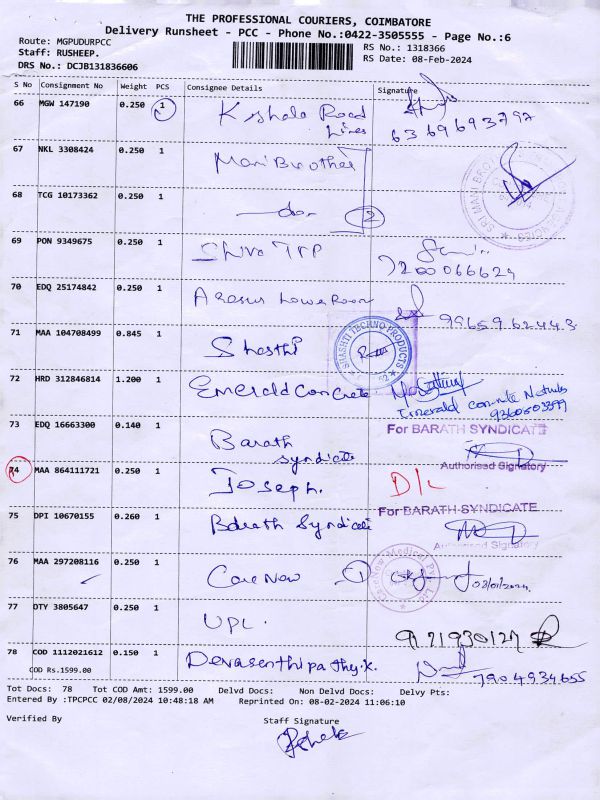 THE PROFESSIONAL COURIERS, COIMBATORE
Delivery Runsheet - PCC - Phone No.:0422-3505555 - Page No.:6
Route: MGPUDURPCC
Staff: RUSHEEP.
DRS No.: DCJB131836606
RS No.: 1318366
RS Date: 08-Feb-2024
S No Consignment No Weight PCS Consignee Details Signature
66 MGW 147190 0.250 1 Road
Lines
6369693797
67 NKL 3308424 0.250 1 Mani Brothers
SRI MANI BRO
68 TCG 10173362 0.250 1 -do- 2
69 PON 9349675 0.250 1 Shiva TPP
7200066629
70 EDQ 25174842 0.250 1 Lower Room
9965962443
71 MAA 104708499 0.845 1 Shasthi
SHASHTI TECHNO PRODUCTS
72 HRD 312846814 1.200 1 Emerald Concrete
Emerald concrete
9360503399
73 EDQ 16663300 0.140 1 Barath
syndicate
For BARATH SYNDICATE
Authorised Signatory
74 MAA 864111721 0.250 1 Joseph. D/L
75 DPI 10670155 0.260 1 Barath Syndicate
For BARATH SYNDICATE
Authorised Signatory
76 MAA 297208116 0.250 1 Care Now 1
CareNow Medical Pvt Ltd
77 DTY 3805647 0.250 1 UPL.
9171930127
78 COD 1112021612 0.150 1 Devasenthipathy.k.
COD Rs.1599.00
7904934655
Tot Docs: 78 Tot COD Amt: 1599.00 Delvd Docs: Non Delvd Docs: Delvy Pts:
Entered By :TPCPCC 02/08/2024 10:48:18 AM Reprinted On: 08-02-2024 11:06:10
Verified By Staff Signature